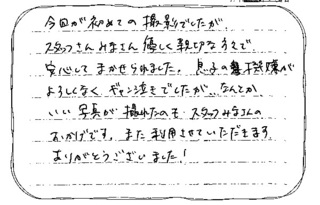 今回が初めての撮影でしたが
スタッフさんみなさん優しく親切な方で
安心してまかせられました。息子の機嫌が
よろしくなく ギャン泣きでしたが、なんとか
いい写真が撮れたのも スタッフみなさんの
おかげです。また利用させていただきます
ありがとうございました!